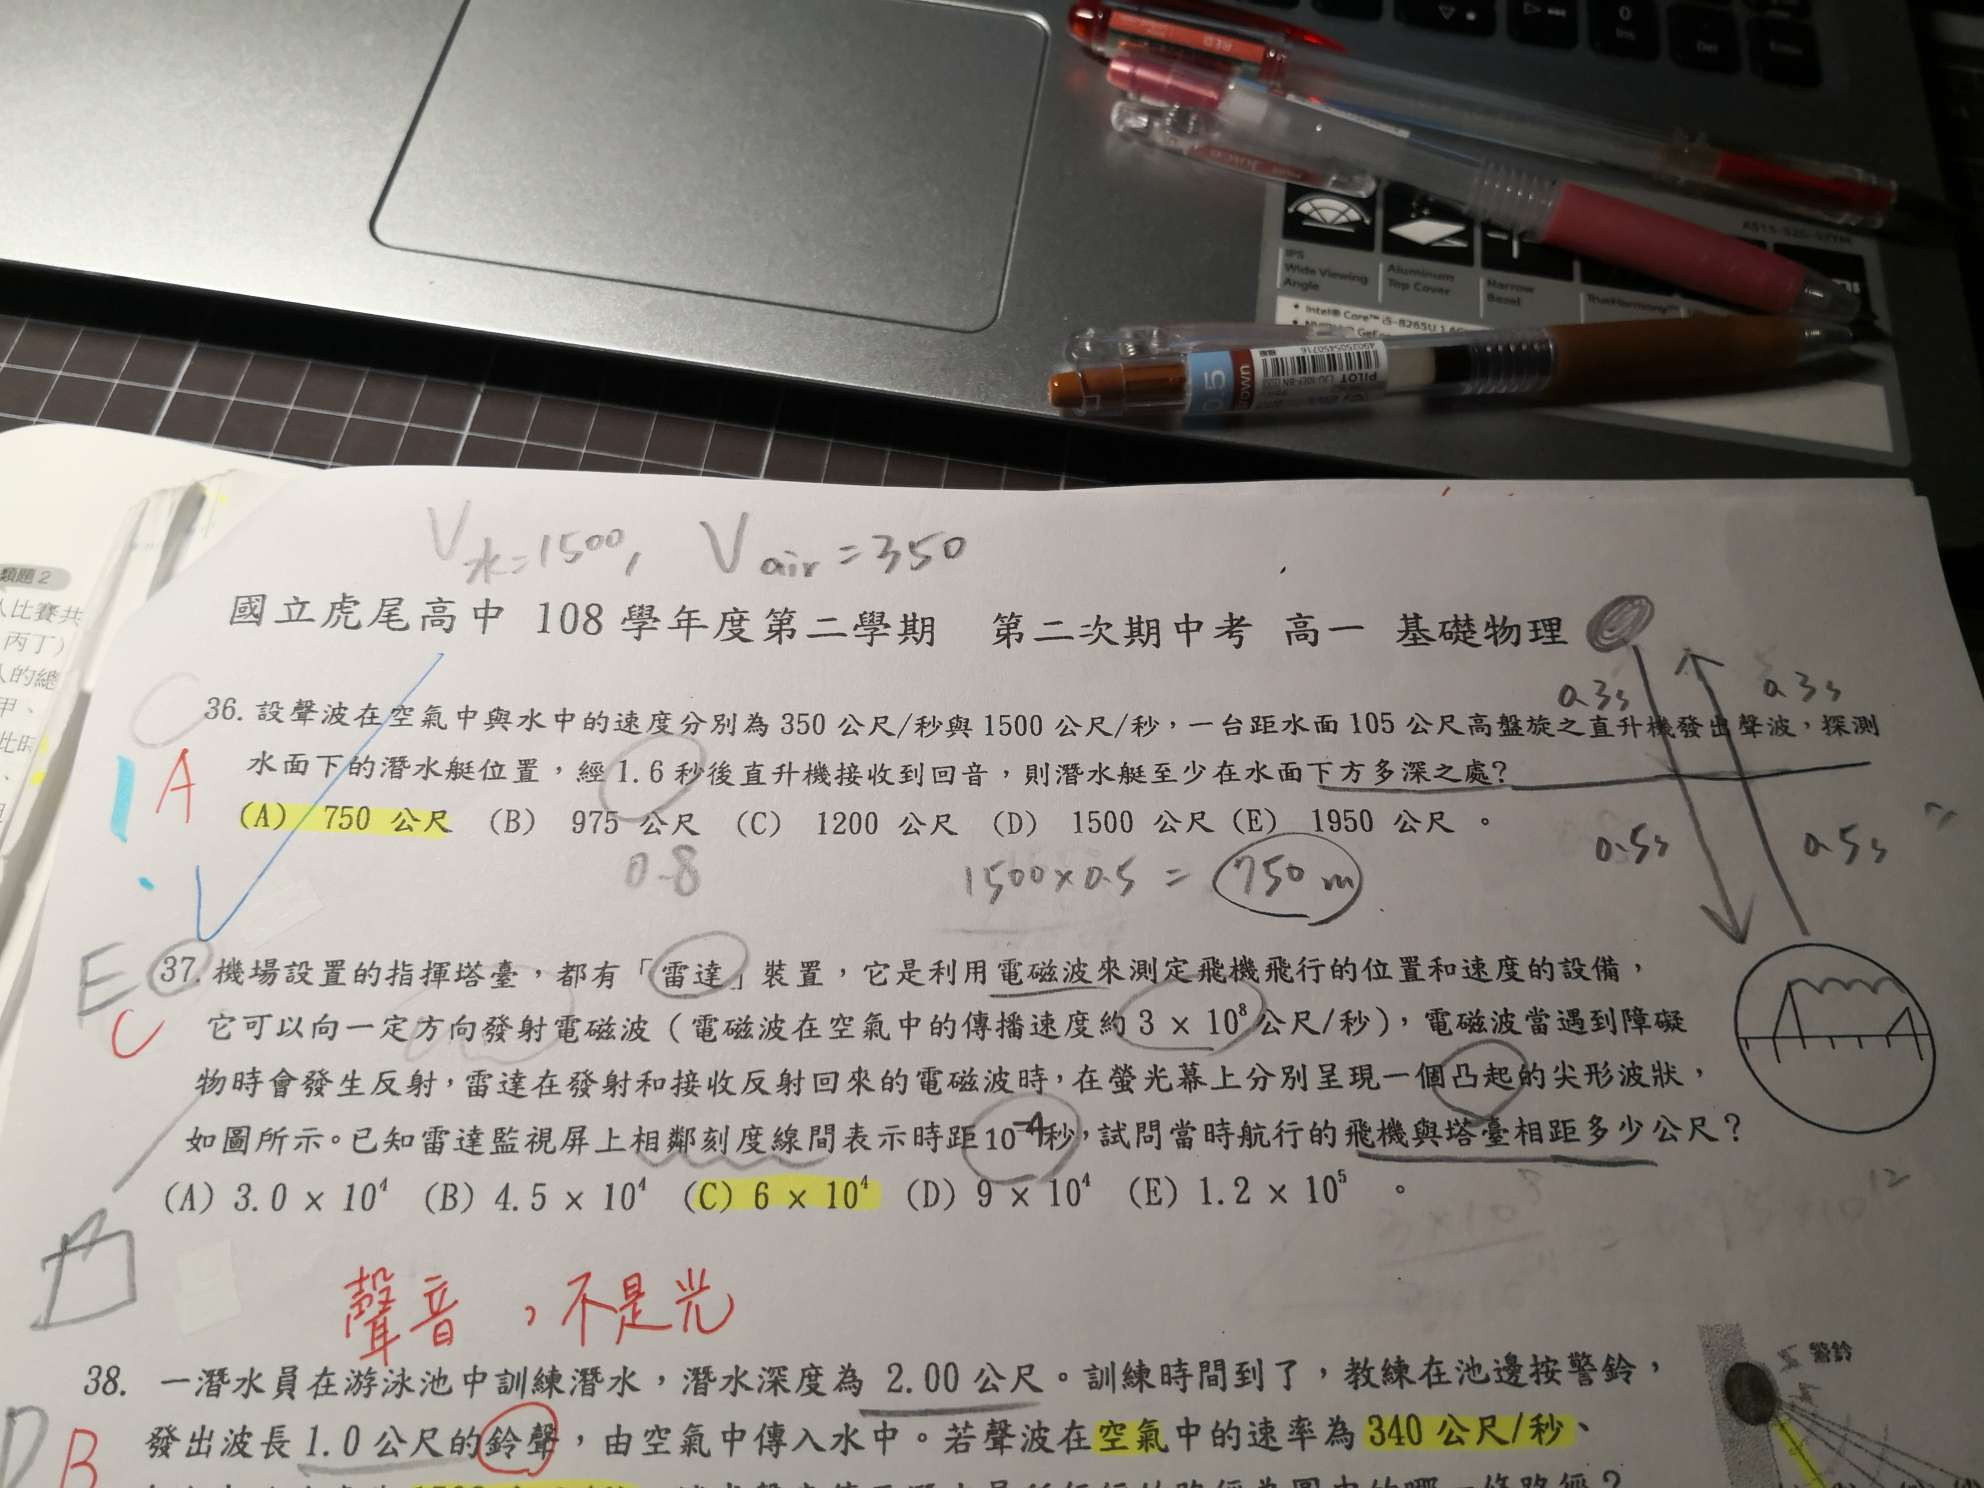 IPS
Wide Viewing
Angle
Aluminum
Top Cover
Narrow
Bezel
TrueHarmony™
Intel® Core™ i5-8265U
0.5
PILOT
V水=1500, Vair=350
國立虎尾高中 108 學年度第二學期 第二次期中考 高一 基礎物理
類題 2
人比賽共
丙丁)
C
36. 設聲波在空氣中與水中的速度分別為 350 公尺/秒與 1500 公尺/秒，一台距水面 105 公尺高盤旋之直升機發出聲波，探測
水面下的潛水艇位置，經 1.6 秒後直升機接收到回音，則潛水艇至少在水面下方多深之處?
A
(A) 750 公尺 (B) 975 公尺 (C) 1200 公尺 (D) 1500 公尺 (E) 1950 公尺 。
0.3s 0.3s
0.5s 0.5s
0.8 1500×0.5 = 750m
E
37. 機場設置的指揮塔臺，都有「雷達」裝置，它是利用電磁波來測定飛機飛行的位置和速度的設備，
C
它可以向一定方向發射電磁波（電磁波在空氣中的傳播速度約 3 × 10⁸ 公尺/秒），電磁波當遇到障礙
物時會發生反射，雷達在發射和接收反射回來的電磁波時，在螢光幕上分別呈現一個凸起的尖形波狀，
如圖所示。已知雷達監視屏上相鄰刻度線間表示時距10⁻⁴秒，試問當時航行的飛機與塔臺相距多少公尺？
(A) 3.0 × 10⁴ (B) 4.5 × 10⁴ (C) 6 × 10⁴ (D) 9 × 10⁴ (E) 1.2 × 10⁵ 。
聲音，不是光
38. 一潛水員在游泳池中訓練潛水，潛水深度為 2.00 公尺。訓練時間到了，教練在池邊按警鈴，
警鈴
D
B
發出波長 1.0 公尺的鈴聲，由空氣中傳入水中。若聲波在空氣中的速率為 340 公尺/秒、